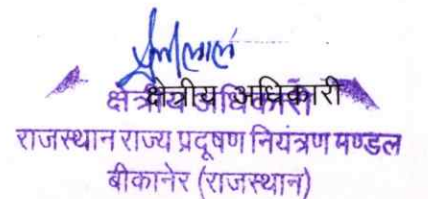 क्षेत्रीय अधिकारी
क्षेत्रीय अधिकारी
राजस्थान राज्य प्रदूषण नियंत्रण मण्डल
बीकानेर (राजस्थान)